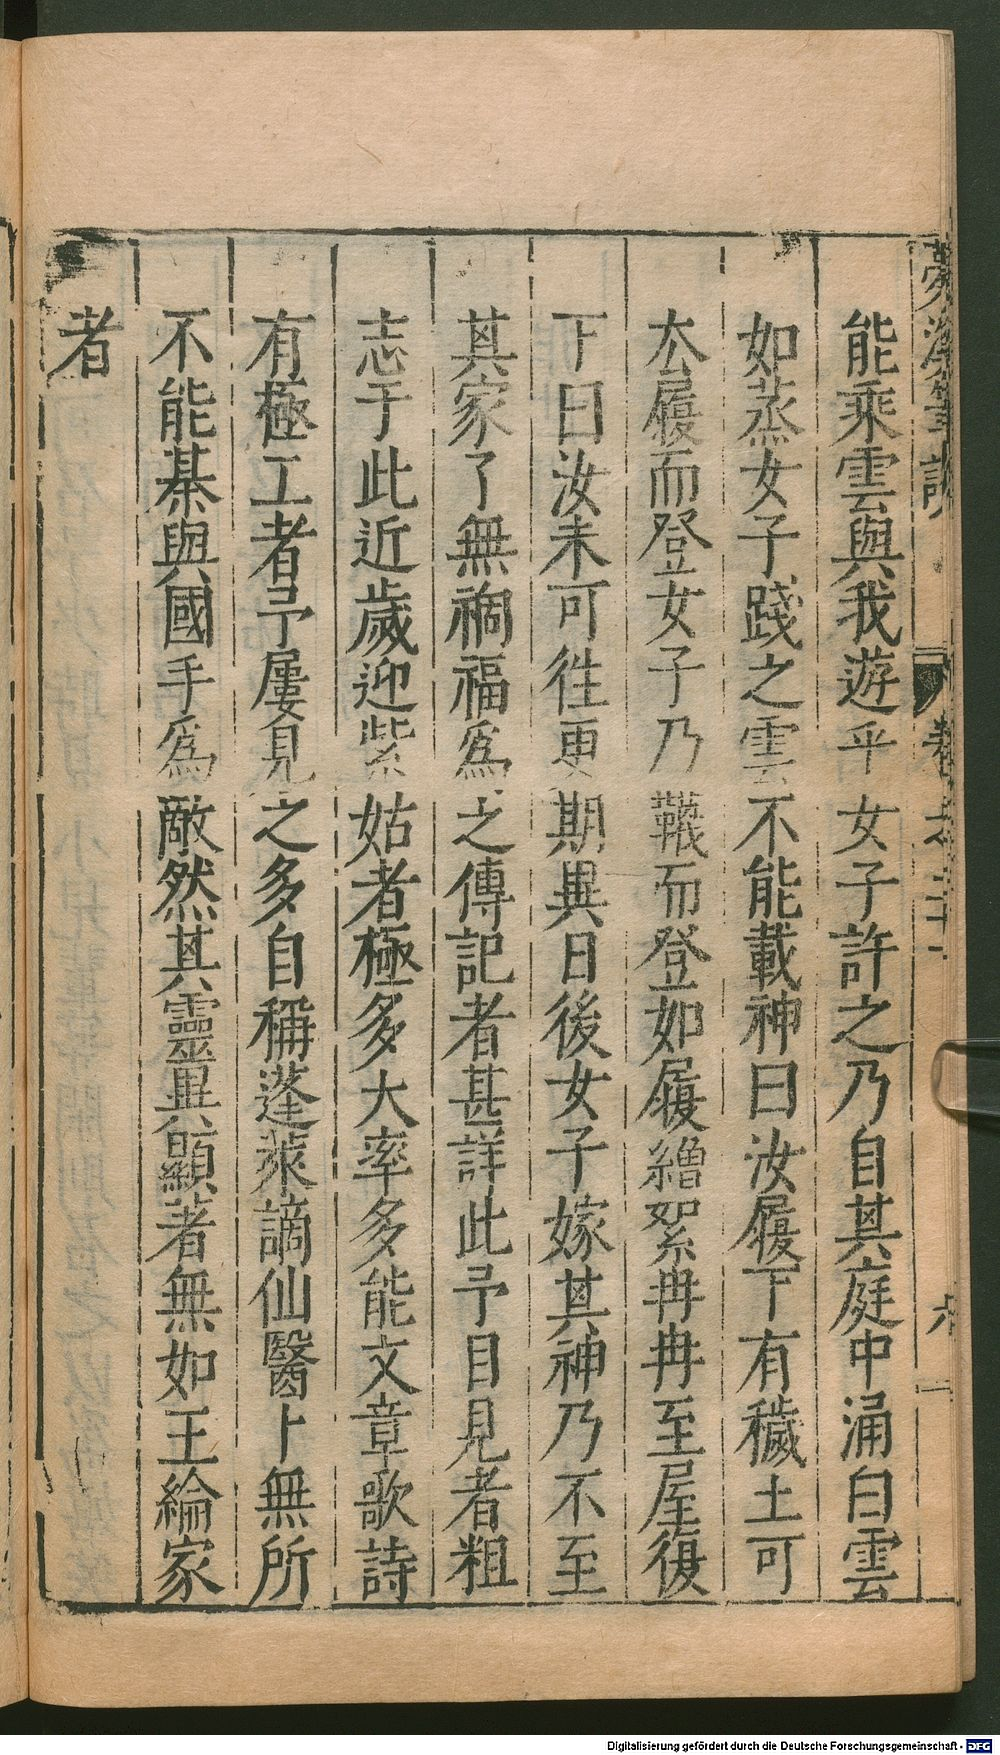 能乘雲與我遊乎女子許之乃自其庭中涌白雲
如蒸女子踐之雲不能載神曰汝履下有穢土可
去履而登女子乃韈而登如履繒絮冉冉至屋復
下曰汝未可徃更期異日後女子嫁其神乃不至
其家了無禍福爲之傳記者甚詳此予目見者粗
志于此近歲迎紫姑者極多大率多能文章歌詩
有極工者予屢見之多自稱蓬萊謫仙醫卜無所
不能棊與國手爲敵然其靈異顯著無如王綸家
者
Digitalisierung gefördert durch die Deutsche Forschungsgemeinschaft - DFG